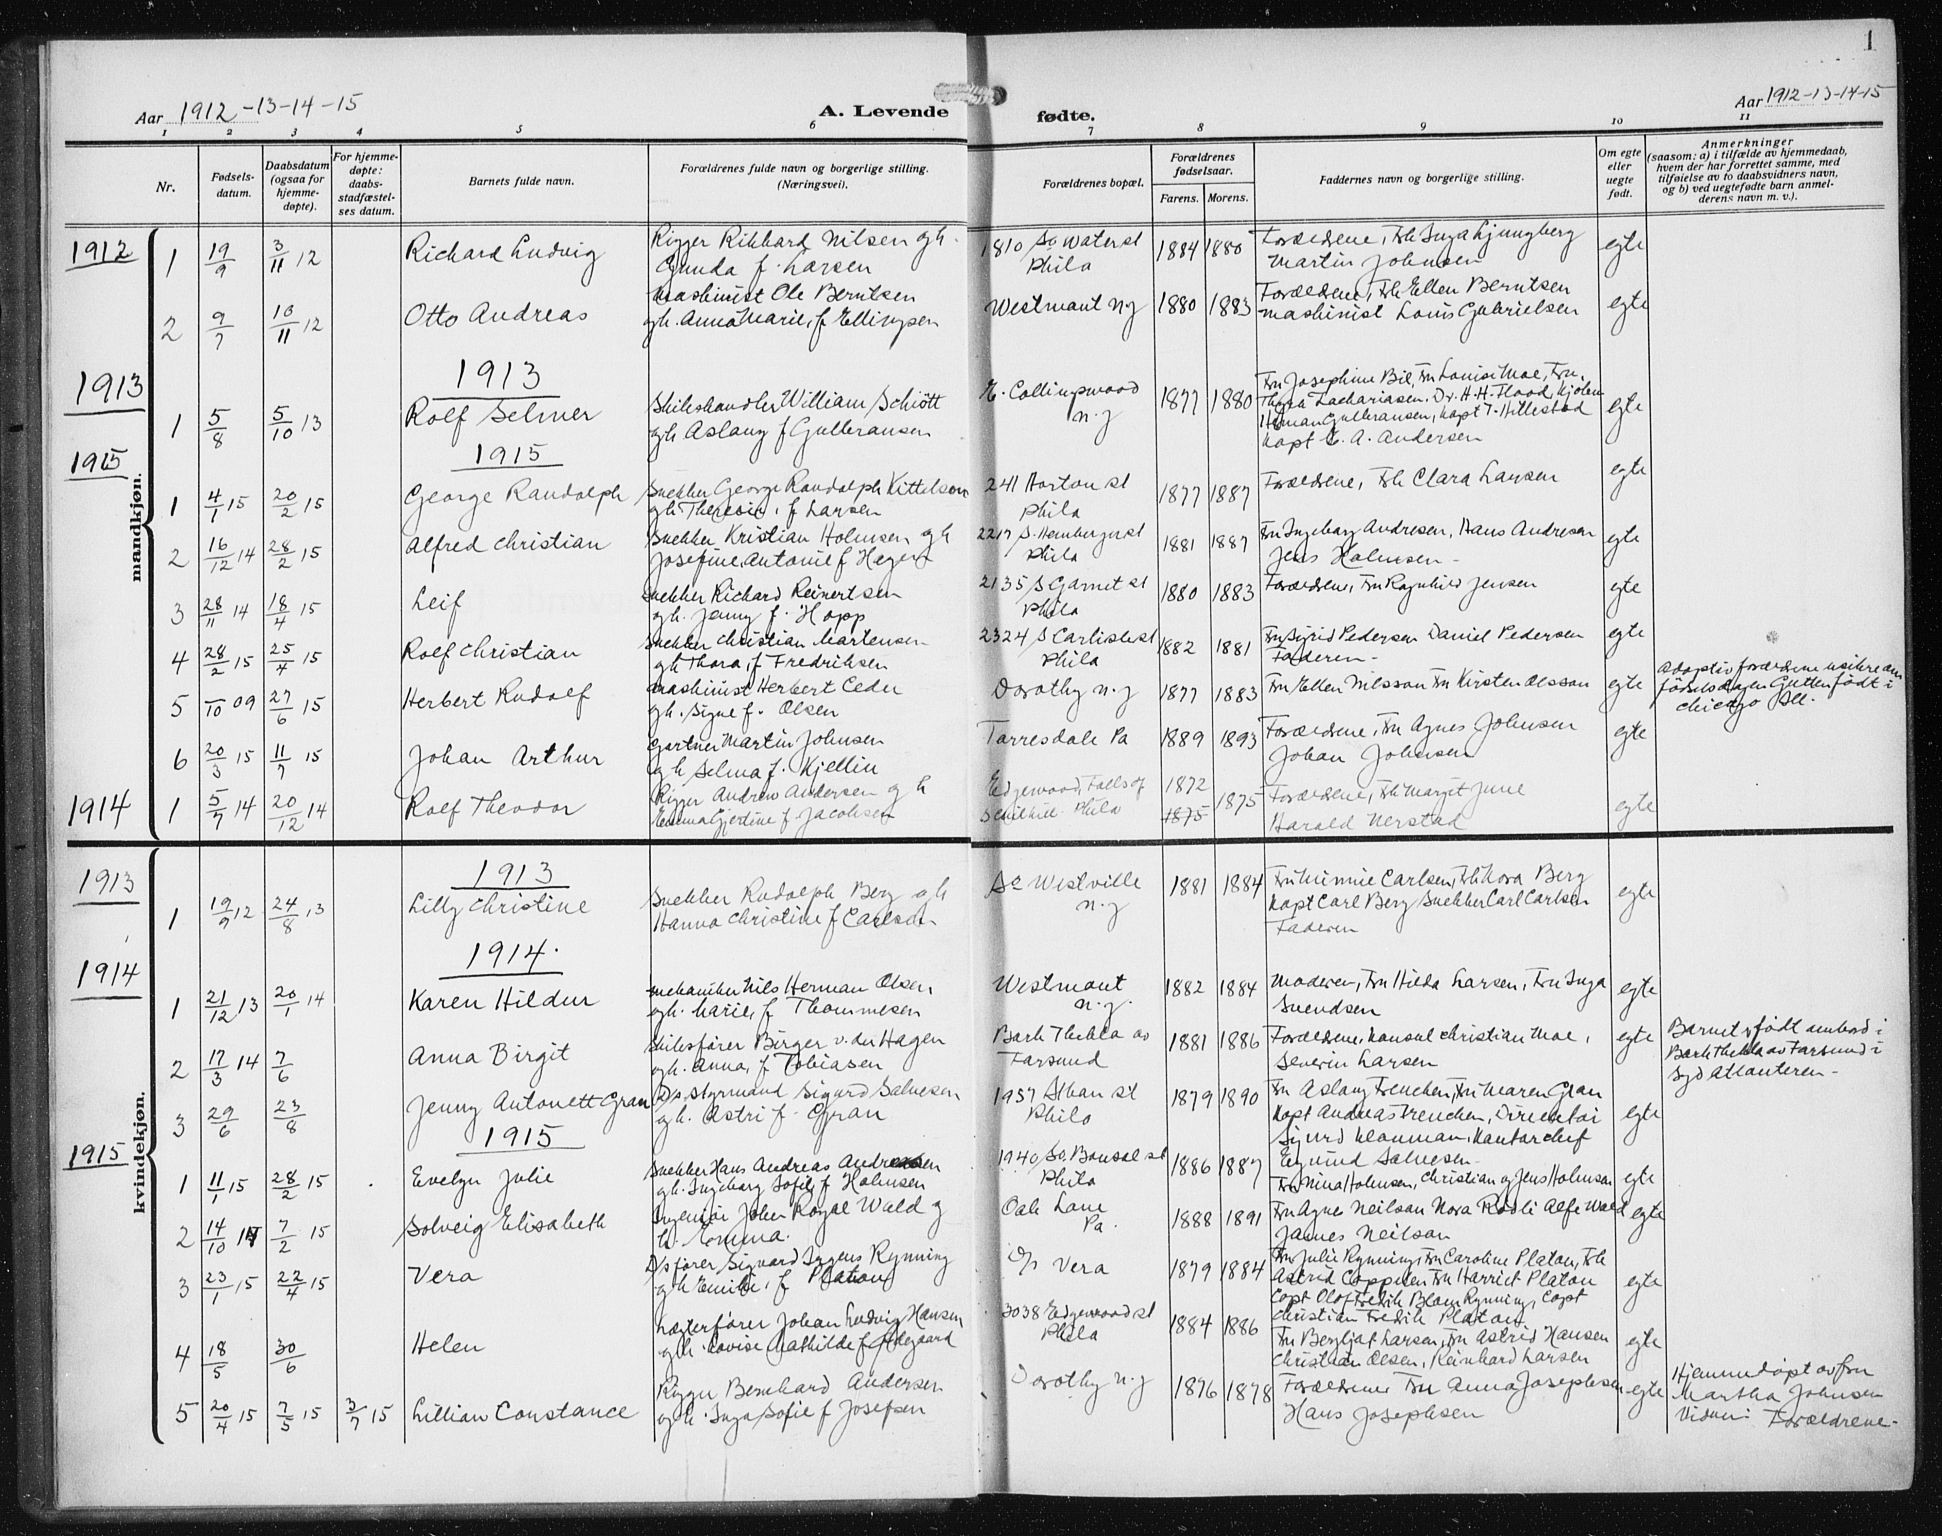 1
Aar 1912-13-14-15
A. Levende fødte.
Aar 1912-13-14-15
1 2 3 4 5 6 7 8 9 10 11
Nr.
Fødsels-
datum.
Daabsdatum
(ogsaa for
hjemme-
døpte).
For hjemme-
døpte:
daabs-
stadfæstel-
ses datum.
Barnets fulde navn.
Forældrenes fulde navn og borgerlige stilling.
(Næringsvei).
Forældrenes bopæl.
Forældrenes
fødselsaar.
Farens. Morens.
Faddernes navn og borgerlige stilling.
Om egte
eller
uegte
født.
Anmerkninger
(saasom: a) i tilfælde av hjemmedaab,
hvem der har forrettet samme, med
tilføielse av to daabsvidners navn,
og b) ved uegtefødte barn anmel-
derens navn m. v.).
mandkjøn.
1912
1 19/9 3/11 12 Richard Ludvig
Rigger Rikhard Nilsen gh.
Gunda f. Larsen
1810 So Water st
Phila
1884 1880
Forældrene, Frk Inga Ljungberg
Martin Johnsen
egte
2 9/7 10/11 12 Otto Andreas
Maskinist Ole Berntsen
gh. Anna Marie, f Ellingsen
Westmont N.J
1880 1883
Forældrene, Frk Ellen Berntsen
Maskinist Louis Gabrielsen
egte
1913
1913
1 5/8 5/10 13 Rolf Selmer
Skibshandler William Schiött
gh Aslaug f Gulbransen
E. Collingswood
N.J
1877 1880
Fru Josephine Bil, Fru Louise Moe, Fru
Thora Zachariasen. Dr. H. H. Flood
Herman Gulbransen, Kapt T. Hillestad
Kapt E. A. Andersen
egte
1915
1915
1 4/1 15 20/2 15 George Randolph
Snekker George Randolph Kittelson
gh Theresie, f Larsen
241 Horton st
Phila
1877 1887
Forældrene, Frk Clara Larsen
egte
2 16/12 14 28/2 15 Alfred Christian
Snekker Kristian Holmsen gh
Josefine Antonie f Hagen
2217 S. Hemberger st
Phila
1881 1887
Fru Ingeborg Andresen, Hans Andresen
Jens Holmsen -
egte
3 28/11 14 18/4 15 Leif
Snekker Richard Reinertsen
gh. Jenny f. Hopp
2135 S Garnet st
Phila
1880 1883
Forældrene, Fru Ragnhild Jensen
egte
4 28/2 15 25/4 15 Rolf Christian
Snekker Christian Martensen
gh Thora, f Fredriksen
2324 S Carlisle st
Phila
1882 1881
Fru Sigrid Pedersen Daniel Pedersen
Faderen -
egte
5 /10 09 27/6 15 Herbert Rudolf
Maskinist Herbert Ceder
gh. Signe f. Olsen
Dorothy N.J
1877 1883
Fru Ellen Nilsson Fru Kirsten Olsson
egte
Adoptivforældrene usikre om
fødselsdagen Gutten født i
Chicago Ill.
6 20/3 15 11/7 15 Johan Arthur
Gartner Martin Johnsen
gh Selma f. Kjellin
Torresdale Pa
1889 1893
Forældrene, Fru Agnes Johnsen
Johan Johnsen
egte
1914
1 5/7 14 20/12 14 Rolf Theodor
Rigger Andrew Andersen gh
Emma Gjerdine f Jacobsen
Edgewood, Falls of
Schilkill Phila
1872
1875 1875
Forældrene, Frk Margit June
Harald Nerstad
egte
kvindekjøn.
1913
1913
1 19/9 12 24/8 13 Lilly Christine
Snekker Rudolph Berg gh
Hanna Christine f Carlsen
So Westville
N.J
1881 1884
Fru Minnie Carlsen, Frk Nora Berg
Kapt Carl Berg Snekker Carl Carlsen
Faderen
egte
1914
1914.
1 21/12 13 20/1 14 Karen Hildur
Mekaniker Nils Herman Olsen
gh. Marie, f Thommesen
Westmont
N.J.
1882 1884
Moderen, Fru Hilda Larsen, Fru Inga
Svendsen
egte
2 17/3 14 7/6 Anna Birgit
Skibsfører Birger v. der Hagen
gh. Anna, f Tobiasen
Bark Thekla av
Farsund
1881 1886
Forældrene, Konsul Christian Moe,
Severin Larsen
egte
Barnet født ombord i
Bark Thekla av Farsund i
Syd Atlanteren -
3 29/6 23/8 Jenny Antonett Gran
D/s styrmand Sigurd Salvesen
gh. Astri f. Gran
1957 Alban st
Phila
1879 1890
Fru Aslaug Trenchen, Fru Maren Gran
Kapt Andreas Trenchen, Direktør
Sigurd Klouman, Kontorchef
Eyvind Salvesen -
egte
1915
1915
1 11/1 15 28/2 15 Evelyn Julie
Snekker Hans Andreas Andresen
gh. Ingeborg Sofie f Holmsen
1940 So. Bonsal st
Phila
1886 1887
Fru Nina Holmsen, Christian og Jens Holmsen
egte
2 14/10 14 7/2 15 Solveig Elisabeth
Ingeniør John Royal Wald g
h. Emma.
Oak Lane
Pa.
1888 1891
Fru Agne Neilson Nora Rodli Alfe Wald
James Neilson
egte
3 23/1 15 22/4 15 Vera
D/s fører Sigvard Irgens Rynning
gh Emilie, f Platou
D/s Vera
1879 1884
Fru Julie Rynning, Fru Caroline Platou, Frk
Astrid Coppelen Fru Harriet Platou
Capt Olof Fredrik Blom Rynning, Capt
Christian Fredrik Platou
egte
4 18/5 30/6 Helen
Lægterfører Johan Ludvig Hansen
gh. Lovise Mathilde f Ødegaard
3038 Edgewood st
Phila
1884 1886
Fru Bergljot Larsen, Fru Astrid Hansen
Christian Olsen, Reinhard Larsen
egte
5 20/4 15 7/5 15 3/7 15 Lillian Constance
Rigger Bernhard Andersen
gh. Inga Sofie f Josefsen
Dorothy N.J
1876 1878
Forældrene Fru Anna Josephsen
Hans Josephsen
egte
Hjemmedøpt av fru
Martha Johnsen
Vidner: Forældrene -